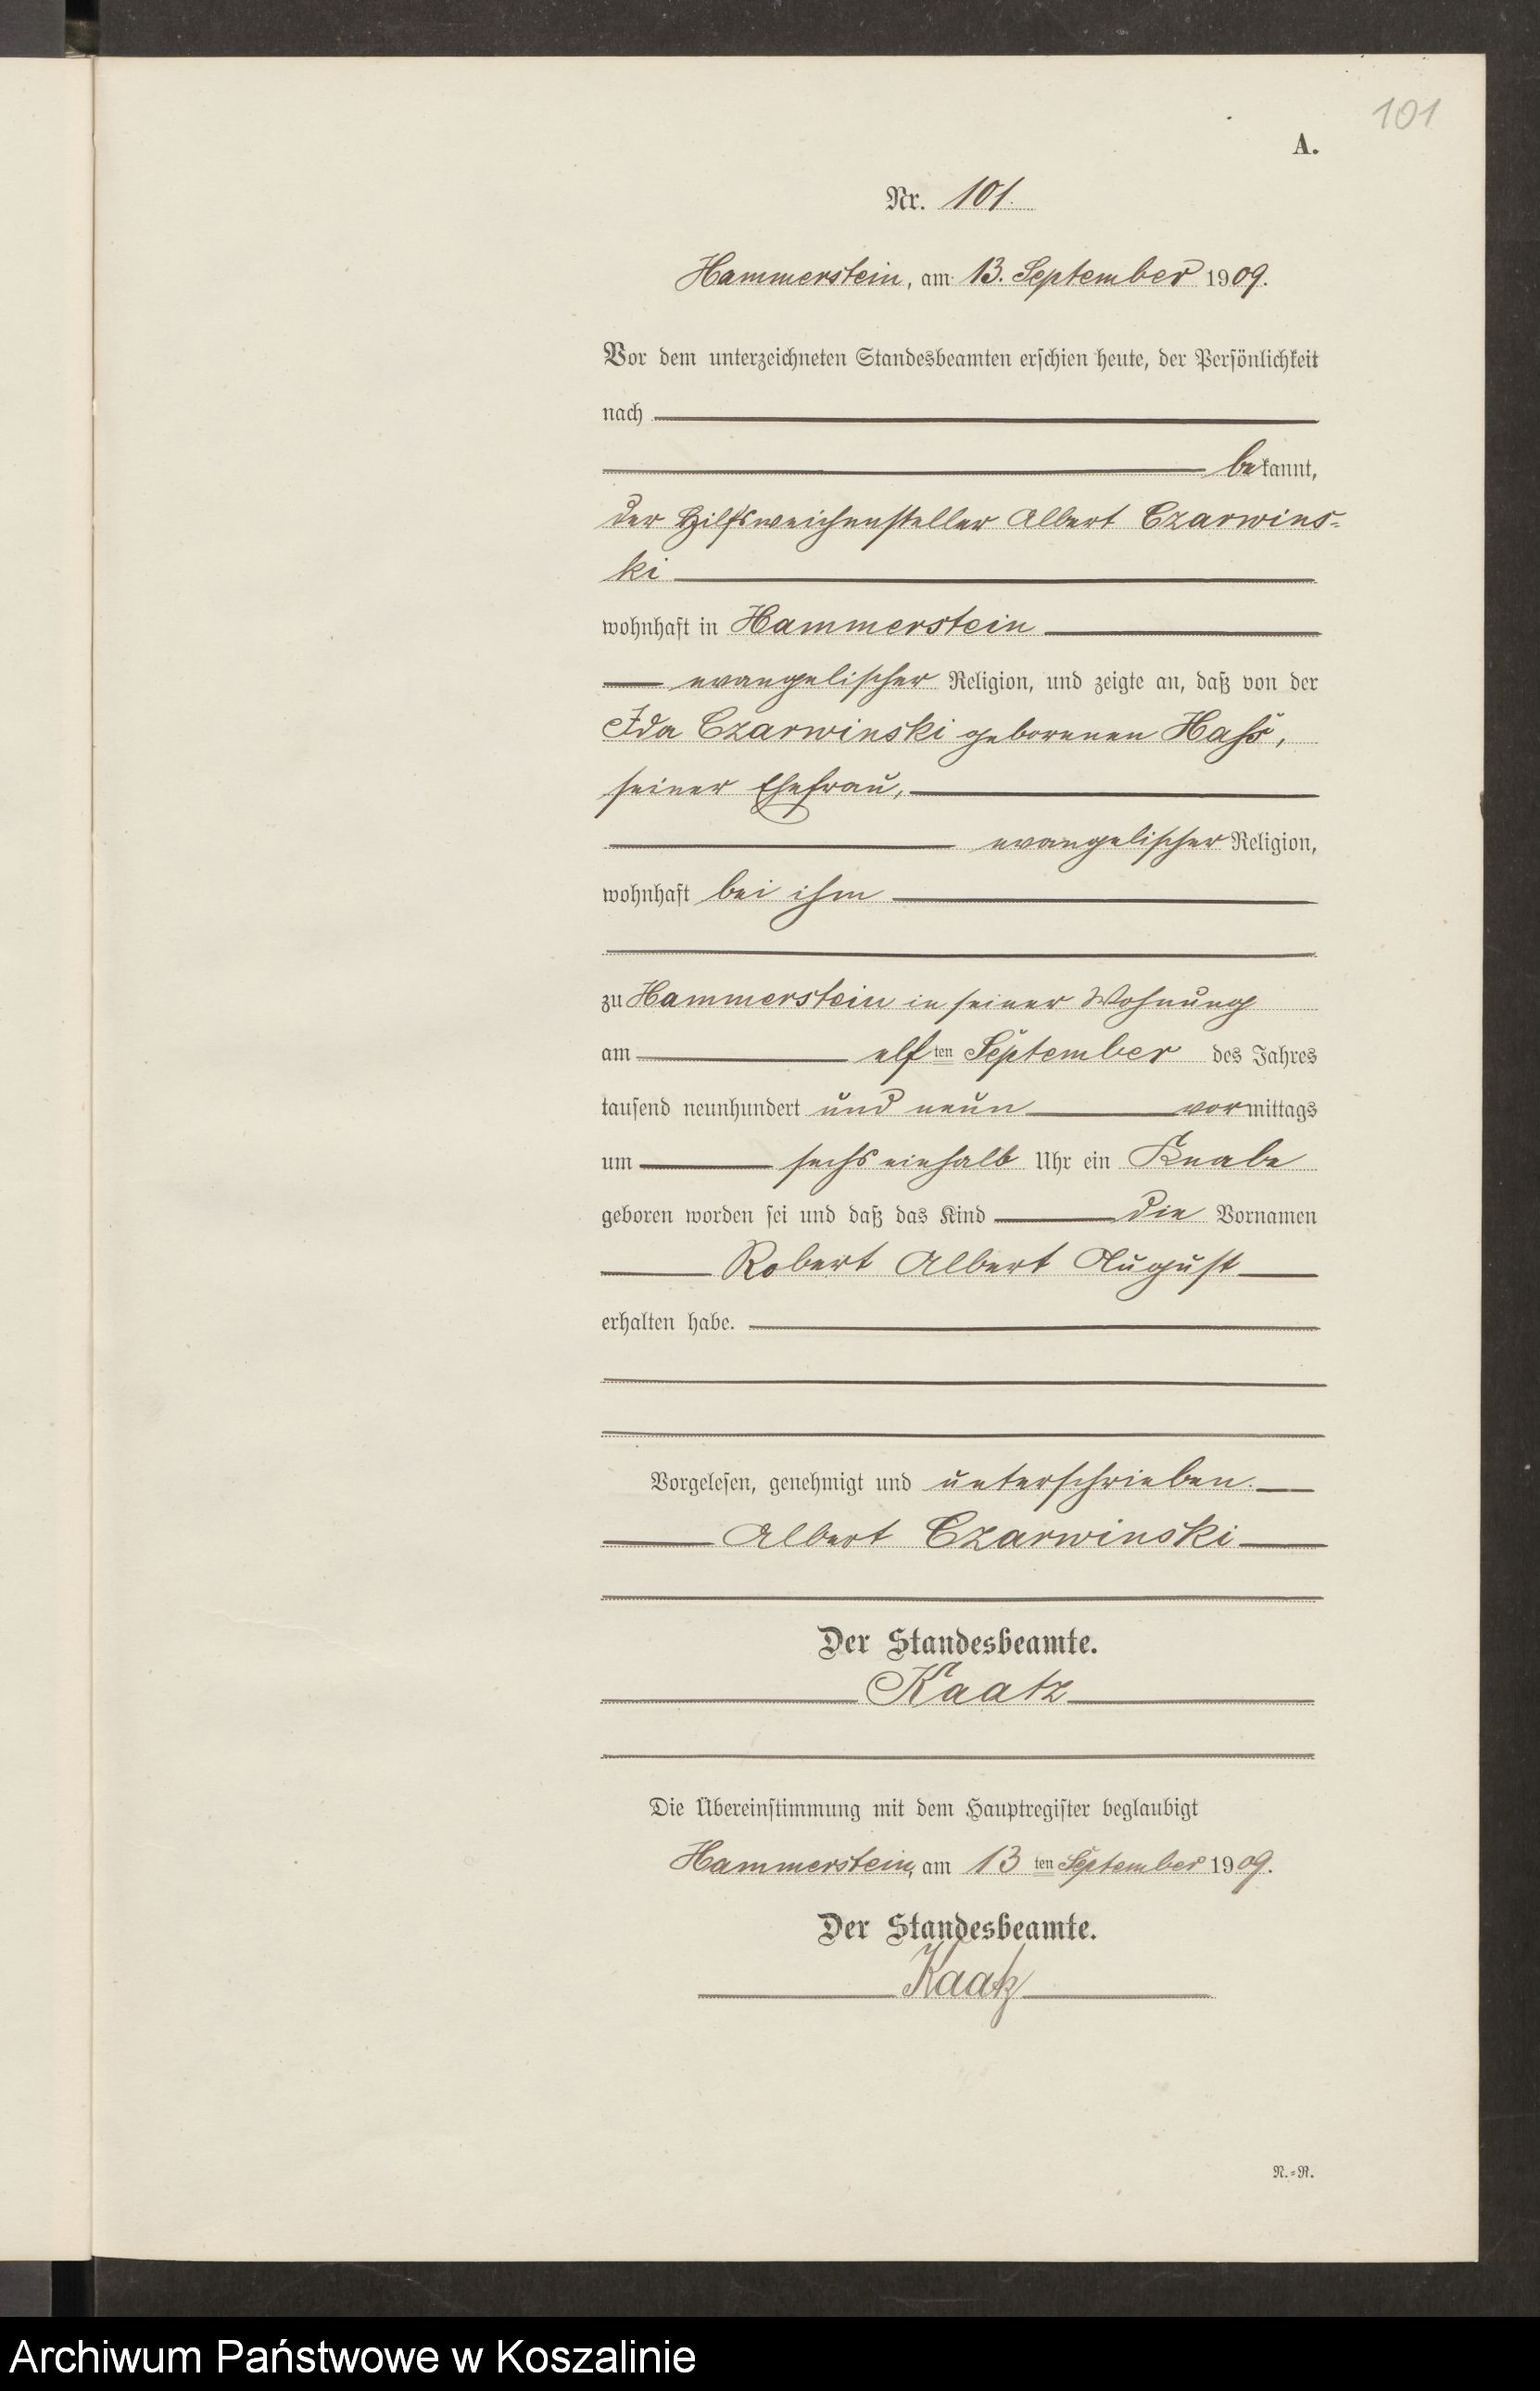 101
A.
Nr. 101.
Hammerstein, am 13. September 1909.
Vor dem unterzeichneten Standesbeamten erschien heute, der Persönlichkeit
nach
bekannt,
der Hilfsweichensteller Albert Czarwins-
ki
wohnhaft in Hammerstein
evangelischer Religion, und zeigte an, daß von der
Ida Czarwinski geborenen Hass,
seiner Ehefrau,
evangelischer Religion,
wohnhaft bei ihm
zu Hammerstein in seiner Wohnung
am elf ten September des Jahres
tausend neunhundert und neun vormittags
um sechs einhalb Uhr ein Knabe
geboren worden sei und daß das Kind die Vornamen
Robert Albert August
erhalten habe.
Vorgelesen, genehmigt und unterschrieben.
Albert Czarwinski
Der Standesbeamte.
Kaatz
Die Übereinstimmung mit dem Hauptregister beglaubigt
Hammerstein, am 13 ten September 1909.
Der Standesbeamte.
Kaatz
N.=R.
Archiwum Państwowe w Koszalinie